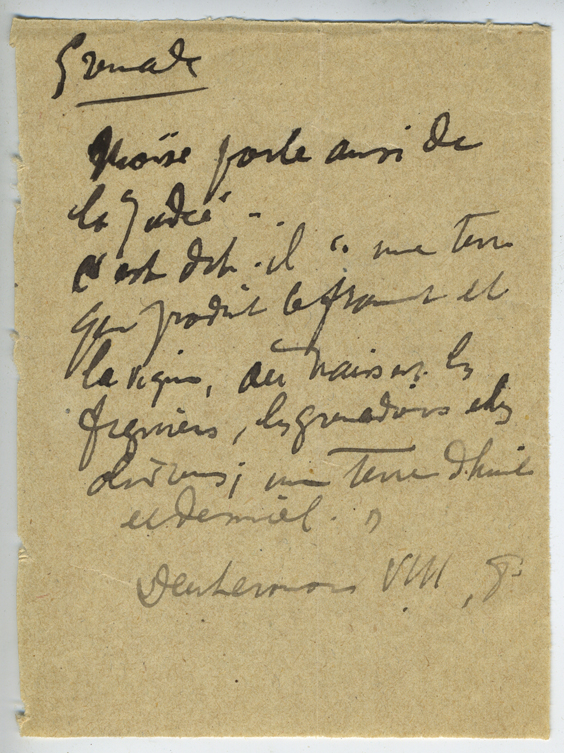 Grenade
Moïse parle aussi de
la Judée
c'est dit-il " une terre
qui produit le froment et
la vigne, où naissent les
figuiers, les grenadiers et les
oliviers ; une terre d'huile
et de miel. "
Deuteronome VIII, 8